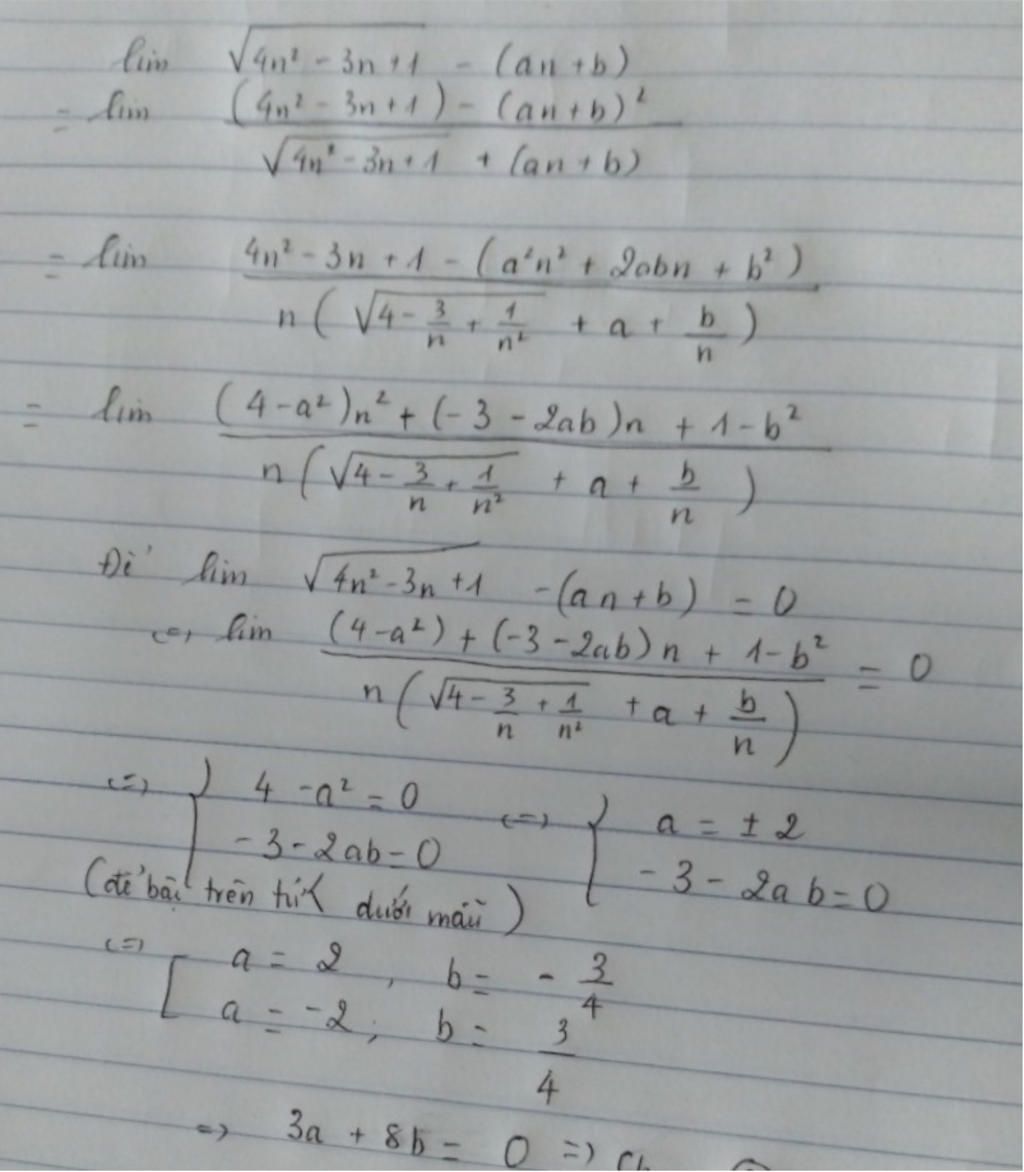 lim √(4n² - 3n + 1) - (an + b)
= lim ((4n² - 3n + 1) - (an + b)²) / (√(4n² - 3n + 1) + (an + b))
= lim (4n² - 3n + 1 - (a²n² + 2abn + b²)) / (n(√(4 - 3/n + 1/n²) + a + b/n))
= lim ((4 - a²)n² + (-3 - 2ab)n + 1 - b²) / (n(√(4 - 3/n + 1/n²) + a + b/n))
Để lim √(4n² - 3n + 1) - (an + b) = 0
<=> lim ((4 - a²) + (-3 - 2ab)n + 1 - b²) / (n(√(4 - 3/n + 1/n²) + a + b/n)) = 0
<=> { 4 - a² = 0 <=> { a = ± 2
-3 - 2ab = 0 -3 - 2ab = 0
(để bậc trên tử < dưới mẫu)
<=> [ a = 2, b = -3/4
a = -2, b = 3/4
=> 3a + 8b = 0 =>